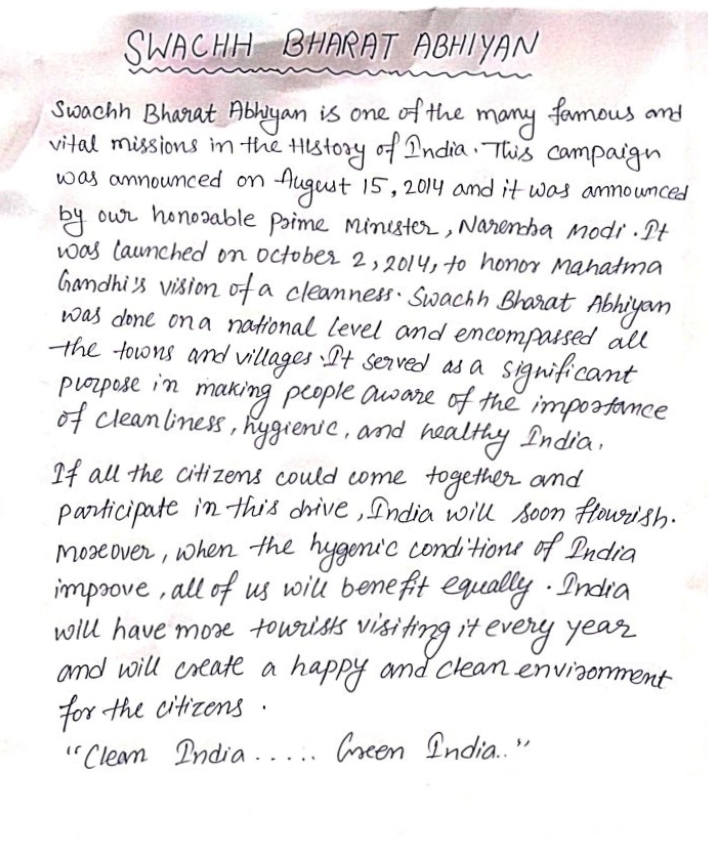 SWACHH BHARAT ABHIYAN
Swachh Bharat Abhiyan is one of the many famous and
vital missions in the History of India. This campaign
was announced on August 15, 2014 and it was announced
by our honorable Prime Minister, Narendra Modi. It
was launched on October 2, 2014, to honor Mahatma
Gandhi's vision of a cleanness. Swachh Bharat Abhiyan
was done on a national level and encompassed all
the towns and villages. It served as a significant
purpose in making people aware of the importance
of cleanliness, hygienic, and healthy India.
If all the citizens could come together and
participate in this drive, India will soon flourish.
Moreover, when the hygenic conditions of India
improve, all of us will benefit equally. India
will have more tourists visiting it every year
and will create a happy and clean environment
for the citizens.
"Clean India ..... Green India.."